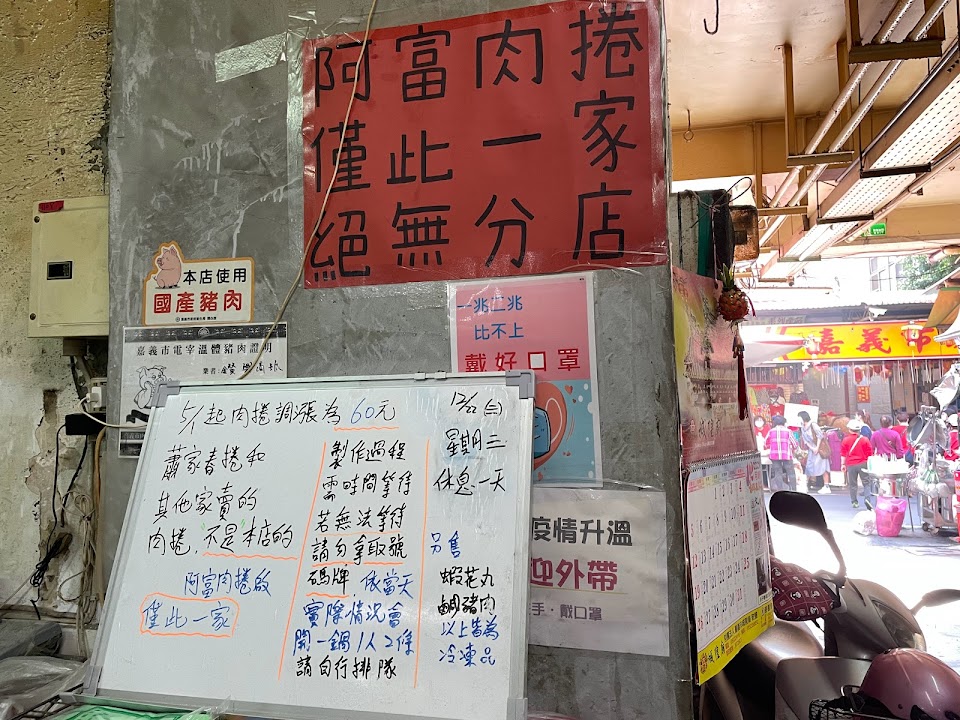 阿富肉捲
僅此一家
絕無分店
本店使用
國產豬肉
嘉義市電宰溫體豬肉證明
一兆二兆
比不上
戴好口罩
5/1起肉捲調漲為60元
蕭家春捲和
其他家賣的
肉捲，不是本店的
阿富肉捲啟
僅此一家
製作過程
需時間等待
若無法等待
請勿拿取號
碼牌 依當天
實際情況會
開一鍋1人2條
請自行排隊
12/22(三)
星期三
休息一天
另售
蝦花丸
鹹豬肉
以上皆為
冷凍品
疫情升溫
迎外帶
手·戴口罩
嘉義市